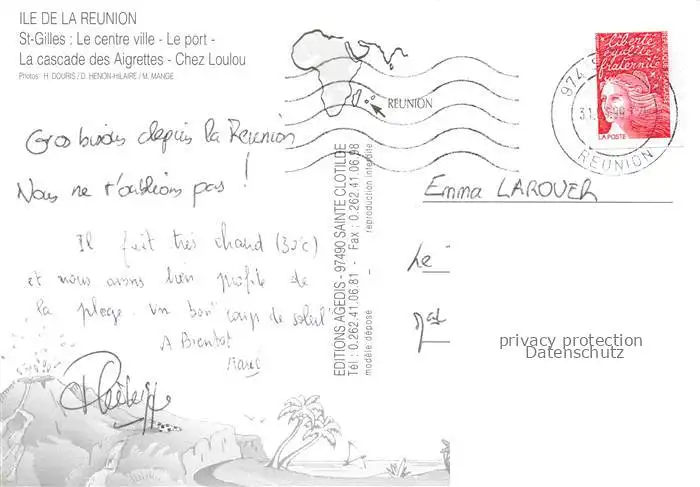 ILE DE LA REUNION
St-Gilles : Le centre ville - Le port -
La cascade des Aigrettes - Chez Loulou
Photos : H. DOURIS / D. HENON-HILAIRE / M. MANGE
REUNION
Gros bisous depuis la Réunion
Nous ne t'oublions pas !
Il fait très chaud (30°c)
et nous avons bien profité de
la plage. Un bon "coup de soleil"
A Bientot
Philippe
EDITIONS AGEDIS - 97490 SAINTE CLOTILDE
Tél : 0.262.41.06.81 - Fax : 0.262.41.06.98
modèle déposé - reproduction interdite
liberté
égalité
fraternité
LA POSTE
974
REUNION
Emma LAROUER
Le
privacy protection
Datenschutz